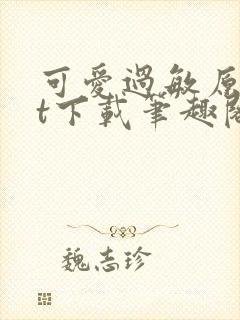 可愛過敏原
t下載筆趣閣
魏志珍